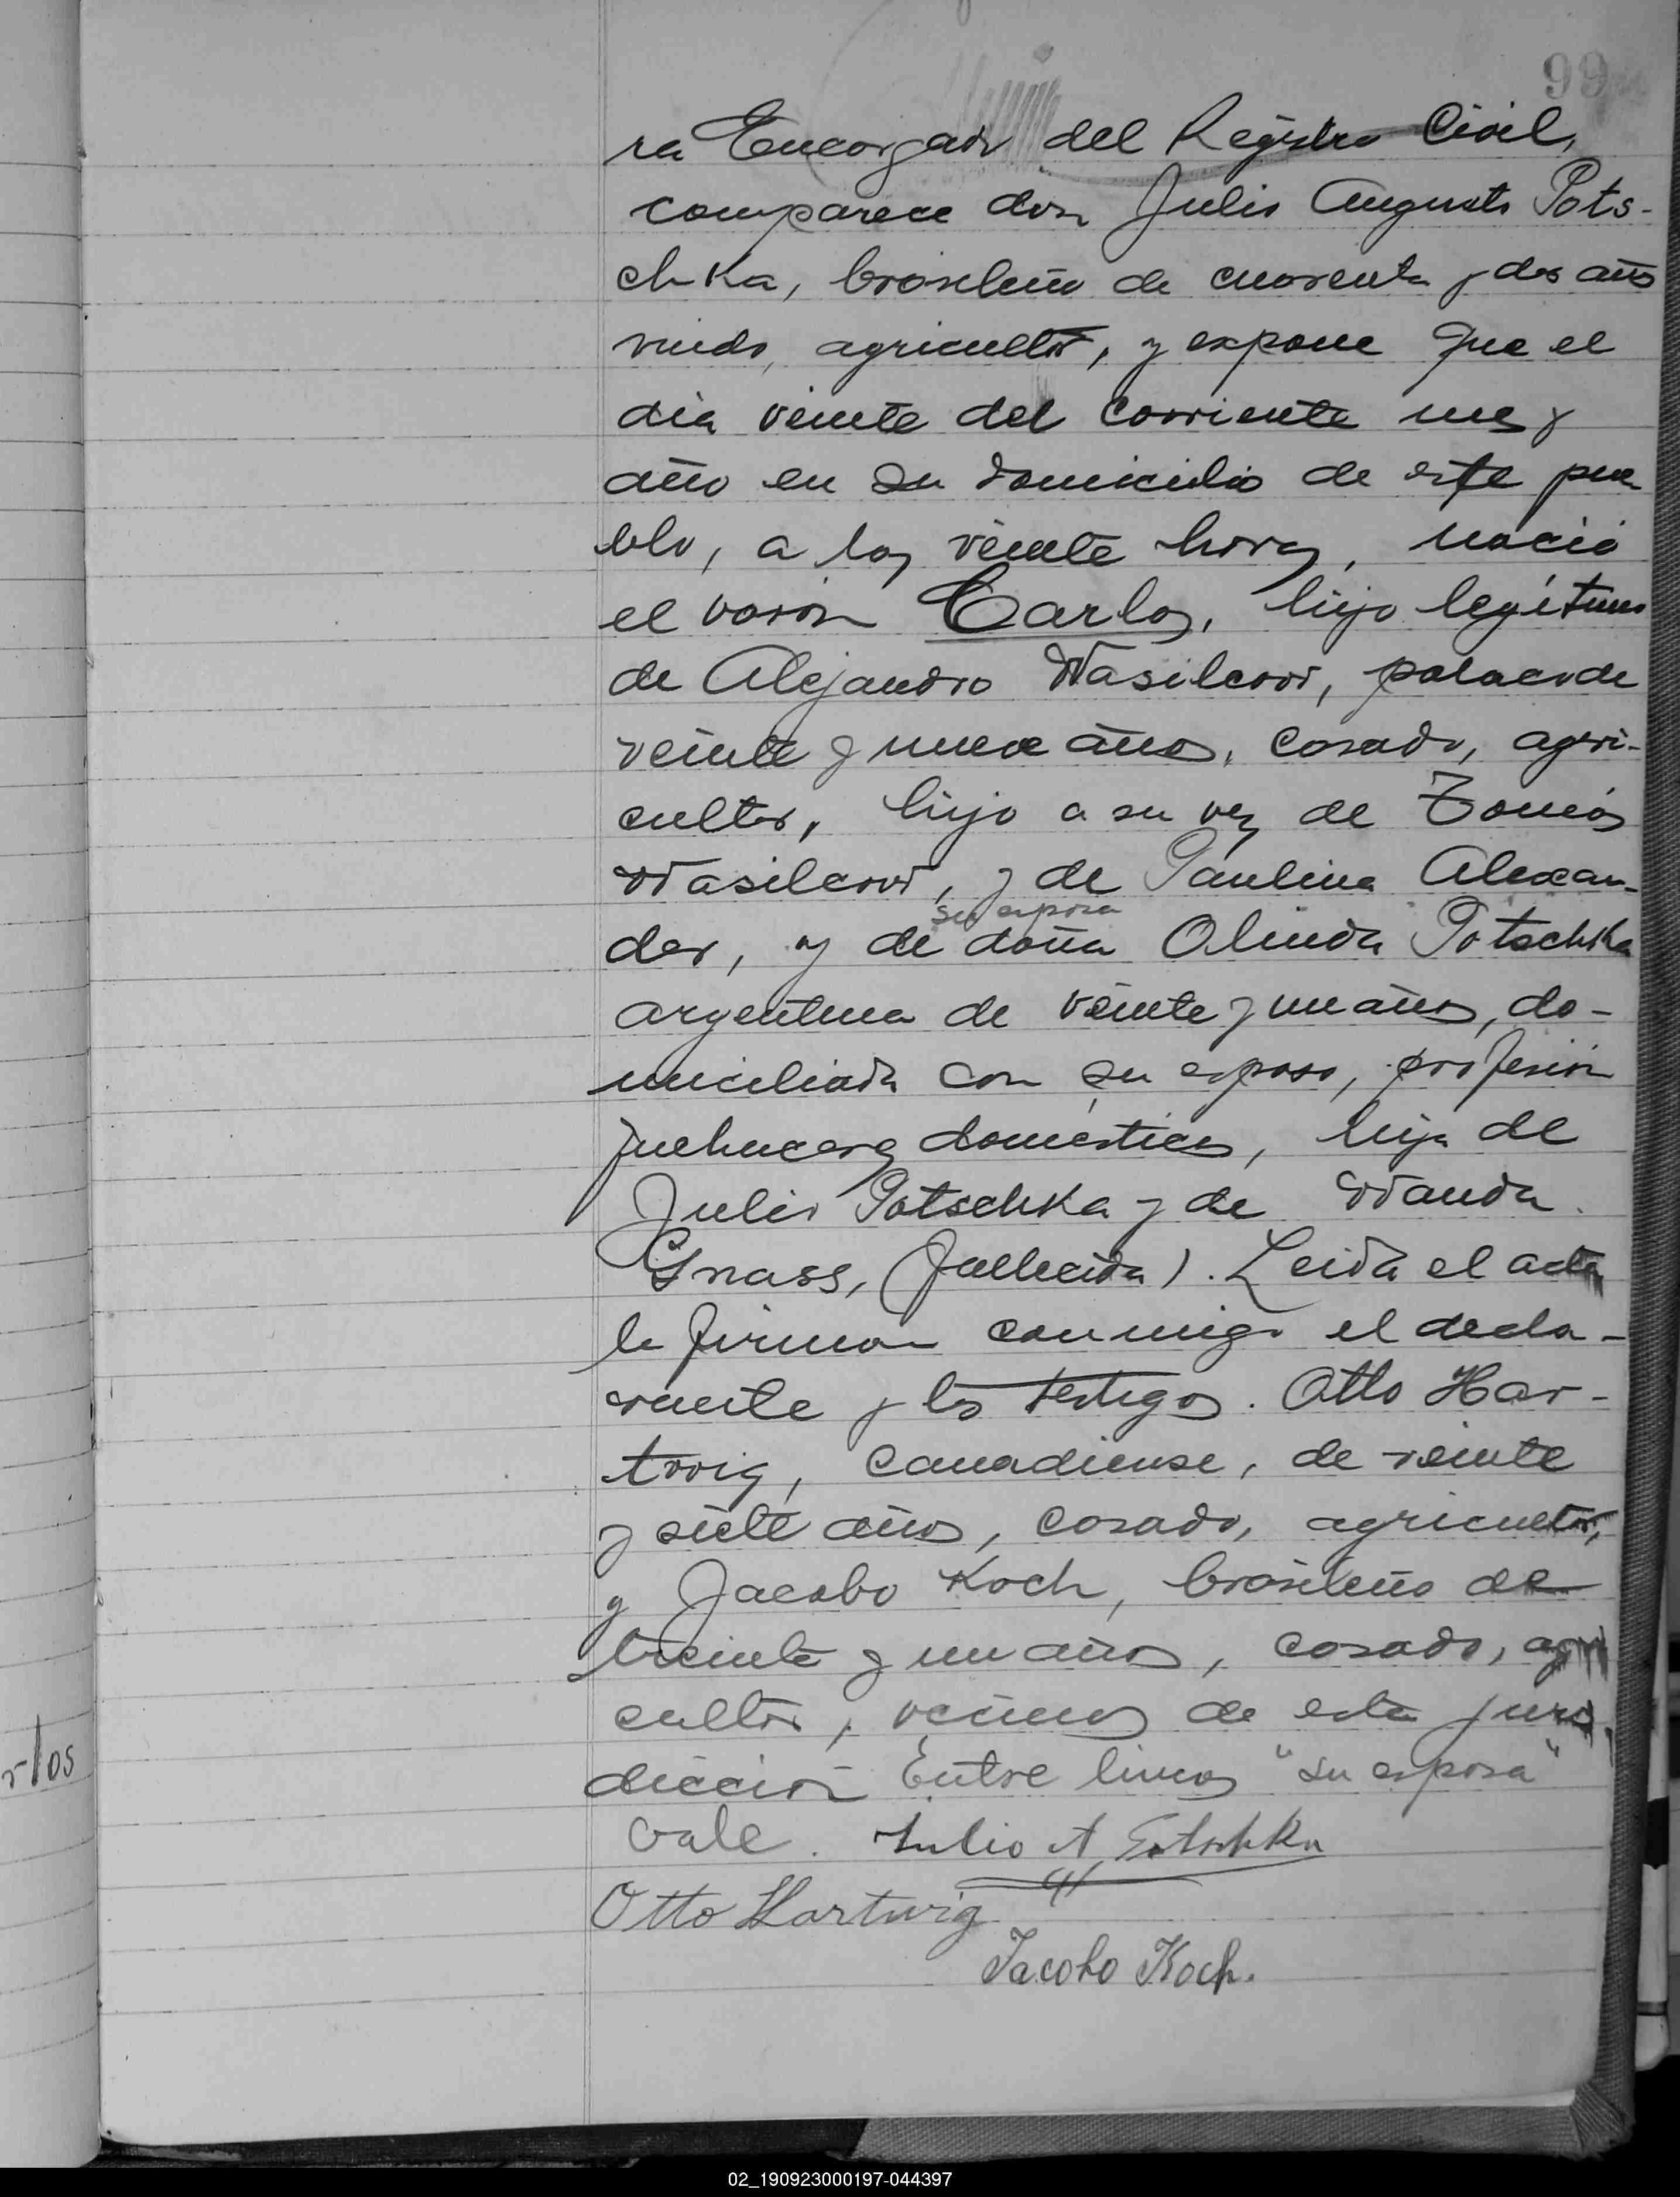 99
ra Encargado del Registro Civil,
comparece don Julio Augusto Pots-
chka, brasileño de cuarenta y dos años
viudo, agricultor, y expone que el
día veinte del corriente mes y
año en su domicilio de este pue
blo, a las veinte horas, nació
el varón Carlos, hijo legítimo
de Alejandro Wasilcow, polaco de
veinte y nueve años, casado, agri-
cultor, hijo a su vez de Tomás
Wasilcow, y de Paulina Alexan-
der, y de su esposa doña Olinda Potschka
argentina de veinte y un años, do-
miciliada con su esposo, profesión
quehaceres domésticos, hija de
Julio Potschka y de Wanda
Gnass, (fallecida). Leida el acta
la firman conmigo el decla-
rante y los testigos. Otto Har-
twig, canadiense, de veinte
y siete años, casado, agricultor,
y Jacobo Koch, brasileño de
treinta y un años, casado, agri
cultor, vecinos de esta juris
dicción Entre lineas "su esposa"
vale. Julio A Potschka
Otto Hartwig
Jacobo Koch.
rlos
02_190923000197-044397